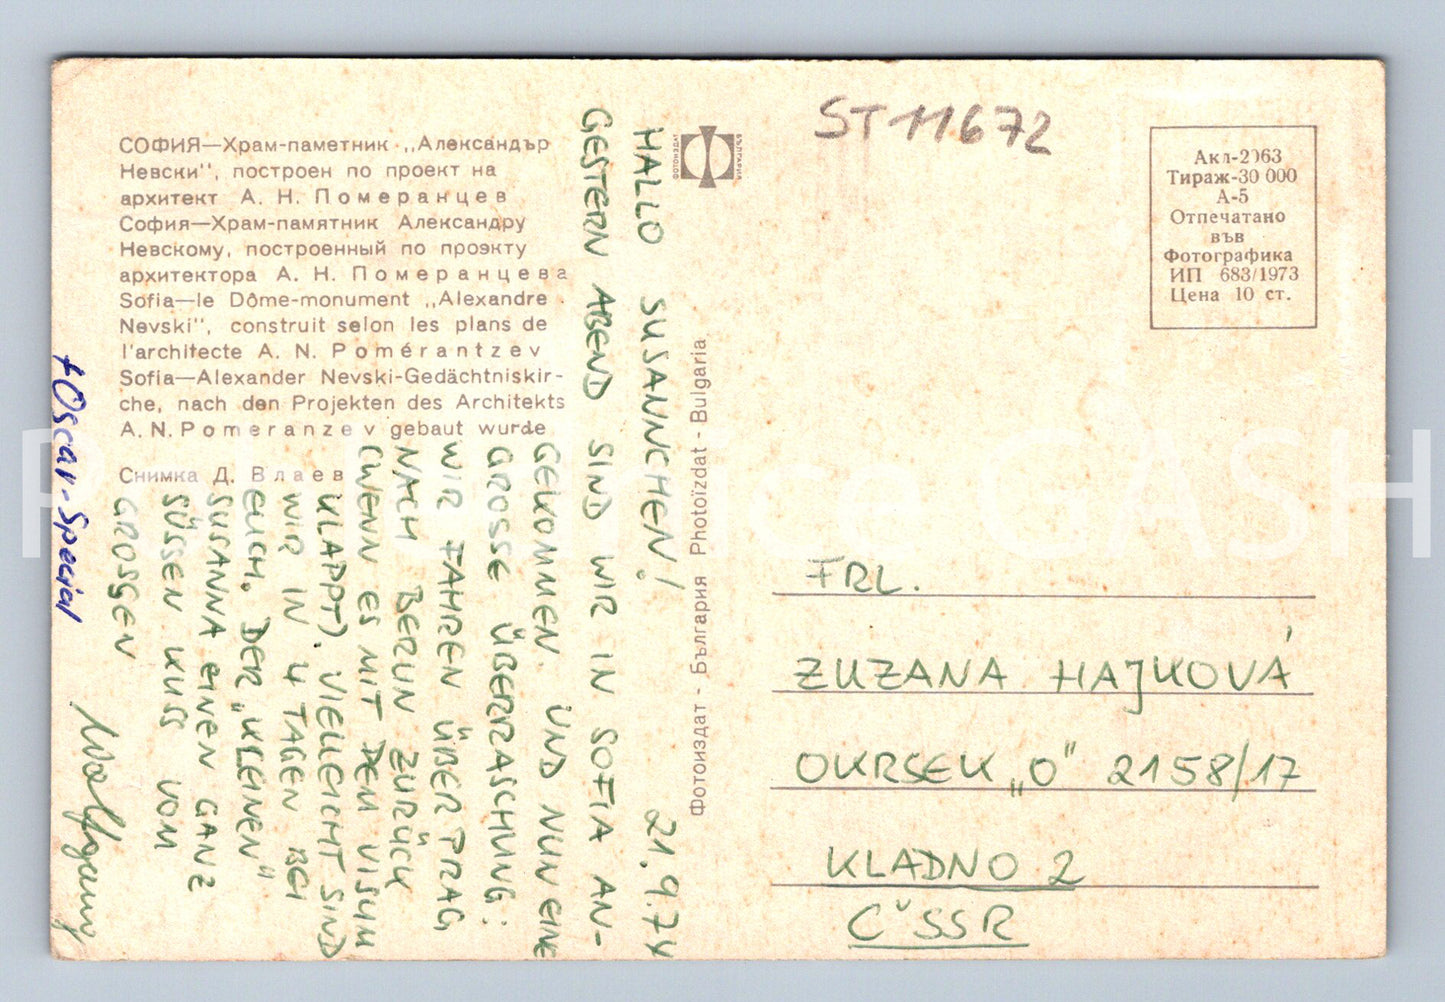 СОФИЯ—Храм-паметник „Александър
Невски", построен по проект на
архитект А. Н. Померанцев
София—Храм-памятник Александру
Невскому, построенный по проэкту
архитектора А. Н. Померанцева
Sofia—le Dôme-monument „Alexandre
Nevski", construit selon les plans de
l'architecte A. N. Pomérantzev
Sofia—Alexander Nevski-Gedächtniskir-
che, nach den Projekten des Architekts
A. N. Pomeranzev gebaut wurde
Снимка Д. Влаев
21.9.74
HALLO SUSANNCHEN!
GESTERN ABEND SIND WIR IN SOFIA AN-
GEKOMMEN. UND NUN EINE
GROSSE ÜBERRASCHUNG:
WIR FAHREN ÜBER PRAG
NACH BERLIN ZURÜCK
(WENN ES MIT DEM VISUM
KLAPPT). VIELLEICHT SIND
WIR IN 4 TAGEN BEI
EUCH. DER „KLEINEN"
SUSANNA EINEN GANZ
SÜSSEN KUSS VOM
GROSSEN
Wolfgang
+Oscar-Special
ФОТОИЗДАТ
БЪЛГАРИЯ
Фотоиздат - България Photoïzdat - Bulgaria
ST 11672
Акл-2063
Тираж-30 000
А-5
Отпечатано
във
Фотографика
ИП 683/1973
Цена 10 ст.
FRL.
ZUZANA HAJKOVÁ
OKRSEK „O" 2158/17
KLADNO 2
ČSSR
CASH